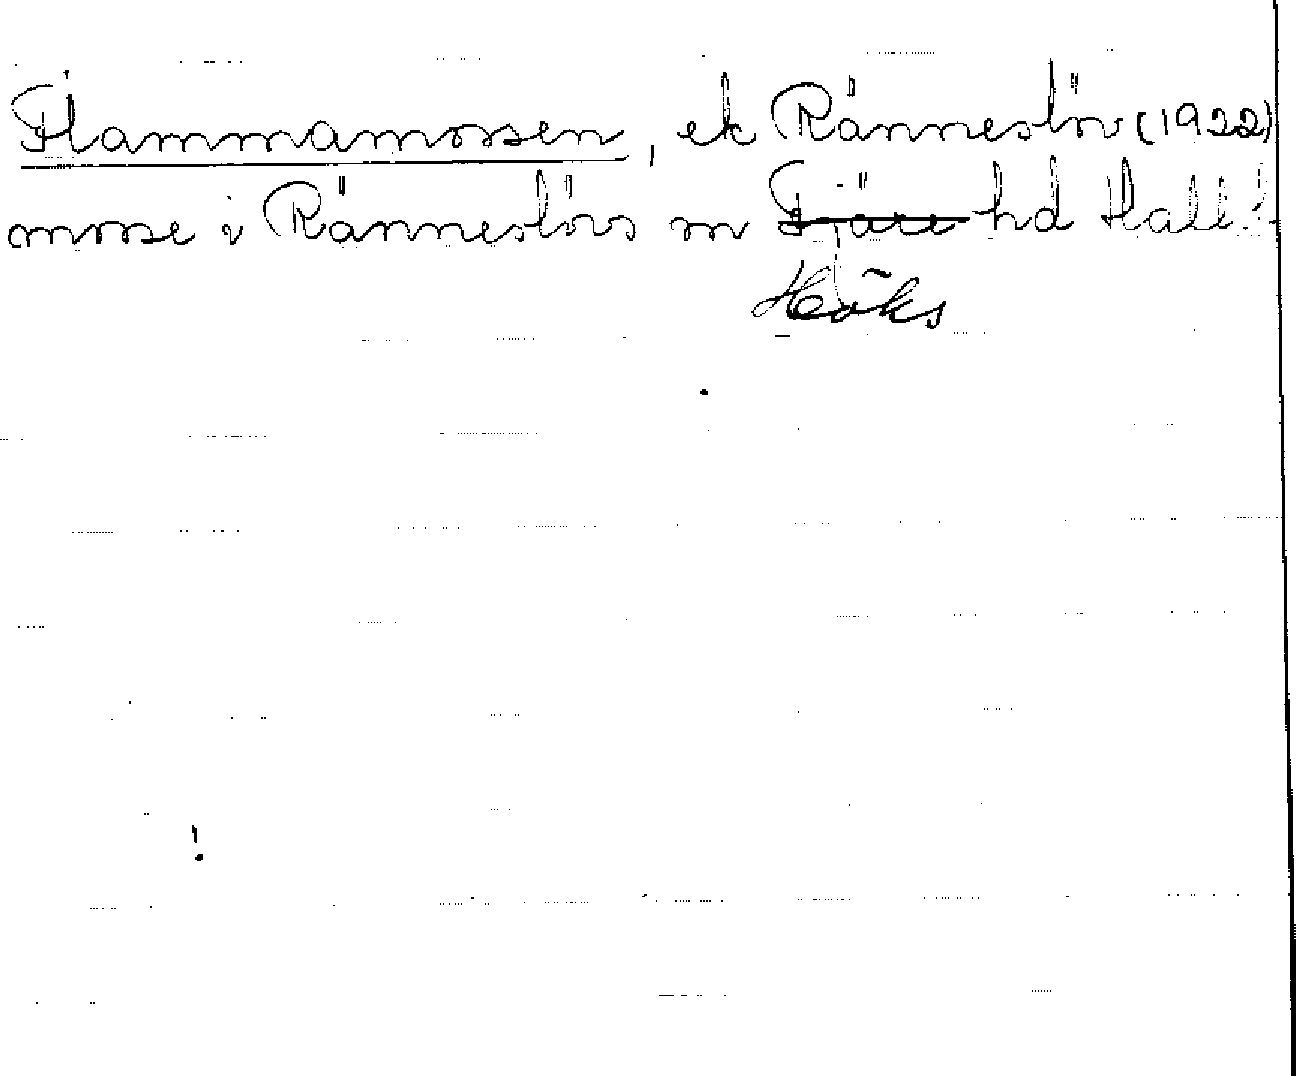 Flammamossen, ek Ränneslöv (1922)
mosse i Ränneslövs sn Fjäre hd Hall.
Höks